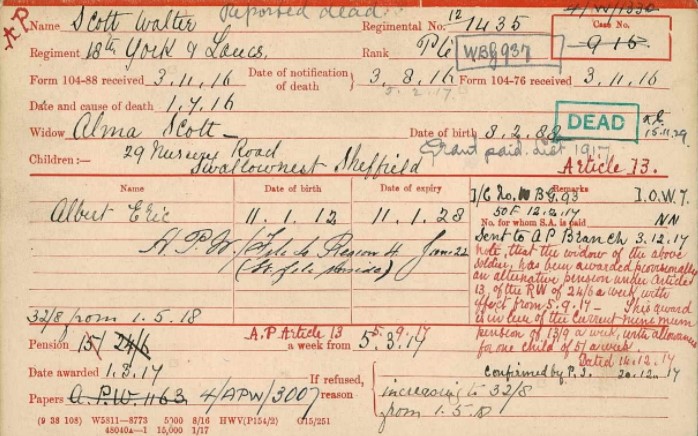 A.P.
Reported dead.
4/W/1330
Name Scott Walter Regimental No. 12/1435 Case No. 916
Regiment 18th York & Lancs. Rank Pte WBG937
Form 104-88 received 3.11.16 Date of notification of death 3.8.16 Form 104-76 received 3.11.16
5.2.17
Date and cause of death 1.7.16 DEAD
15.11.29
Widow Alma Scott Date of birth 8.2.88
Grant paid. 1917
Children:— 29 Nursery Road Article 13.
Swallownest Sheffield
Name Date of birth Date of expiry Remarks
I/C No. WBG.93 I.O.W.T.
50F 12.2.17
Albert Eric 11.1.12 11.1.28 No. for whom S.A. is paid NN
Sent to AP Branch 3.12.17
A.P.W. File to Region 4 June 22
Note, that the widow of the above
soldier, has been awarded provisionally
an alternative pension under Article
13, of the RW of 24/6 a week, with
effect from 5.9.17 — This award
is in lieu of the current minimum
32/8 from 1.5.18 pension of 13/9 a week, with allowance
for one child of 5/- a week.
A.P. Article 13 5.9.17
Pension 15/ 24/6 a week from 5.3.17
Dated 14.12.17
Date awarded 1.3.17 Confirmed by 20.12.17
Papers A.P.W. 1163 4/APW/3007 If refused, reason increasing to 32/8
from 1.5.18
(9 38 108) W5811—8773 5000 8/16 HWV(P154/2) G15/251
48040a—1 15,000 1/17